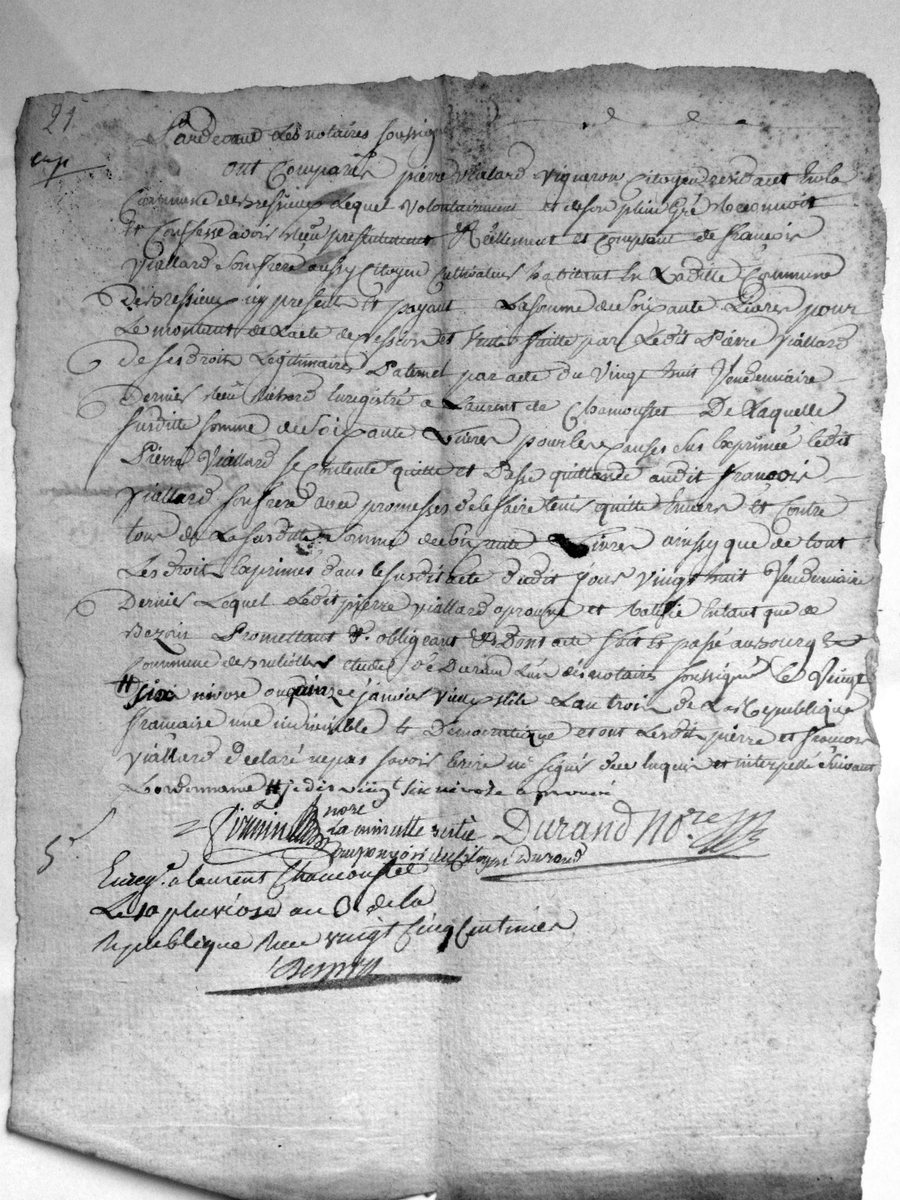 21
exp
Pardevant les notaires soussigné
ont Comparus pierre Vialard Vigneron Citoyen residant en la
Commune de Bressieux lequel Volontairement et de son plein gré Recognoit
et Confesse avoir Reçu presentement Réellement et Comptant de francois
Viallard son frere aussy Citoyen Cultivateur habitant en Laditte Commune
De Bressieux icy present et payant La somme de soixante Livres pour
Le montant de Lacte de Cession et Vente faitte par Ledit Pierre Viallard
de ses droits Legitimaires Paternel par acte du Vingt huit Vendemiaire
Dernier Reçu enregistré a Laurent de Chamousset De Laquelle
susditte somme de soixante Livres pour les Causes sus Exprimée ledit
Pierre Viallard se Contente quitte et Passe quittance audit francois
Viallard son frere avec promesses de le faire tenir quitte Envers et Contre
tous de La susditte somme de soixante Livres ainssy que de tout
Les droits Exprimés dans le susdit acte dudit jour Vingt huit Vendemiaire
Dernier Lequel Ledit pierre viallard aprouve et Ratifie Entant que de
Bezoin Promettant & obligeant & Dont acte fait et passé au Bourg &
Commune de etude de Durand L'un des notaires soussigné Le Vingt
six nivose ou quinze janvier vieux stile L'an trois de La Republique
francaise une indivisible & Democratique et ont Lesdit pierre et francois
viallard declaré ne pas savoir Ecrire ni signer de ce Enquis et interpellé suivant
L'ordonnance je dis vingt six nivose aprouvé
nore
La minutte restée
au pouvoir du Citoyen Durand
Durand Nore
Enreg. a Laurent Chamousset
Le 10 pluviose an 3 de la
Republique Recu vingt Cinq Centimes